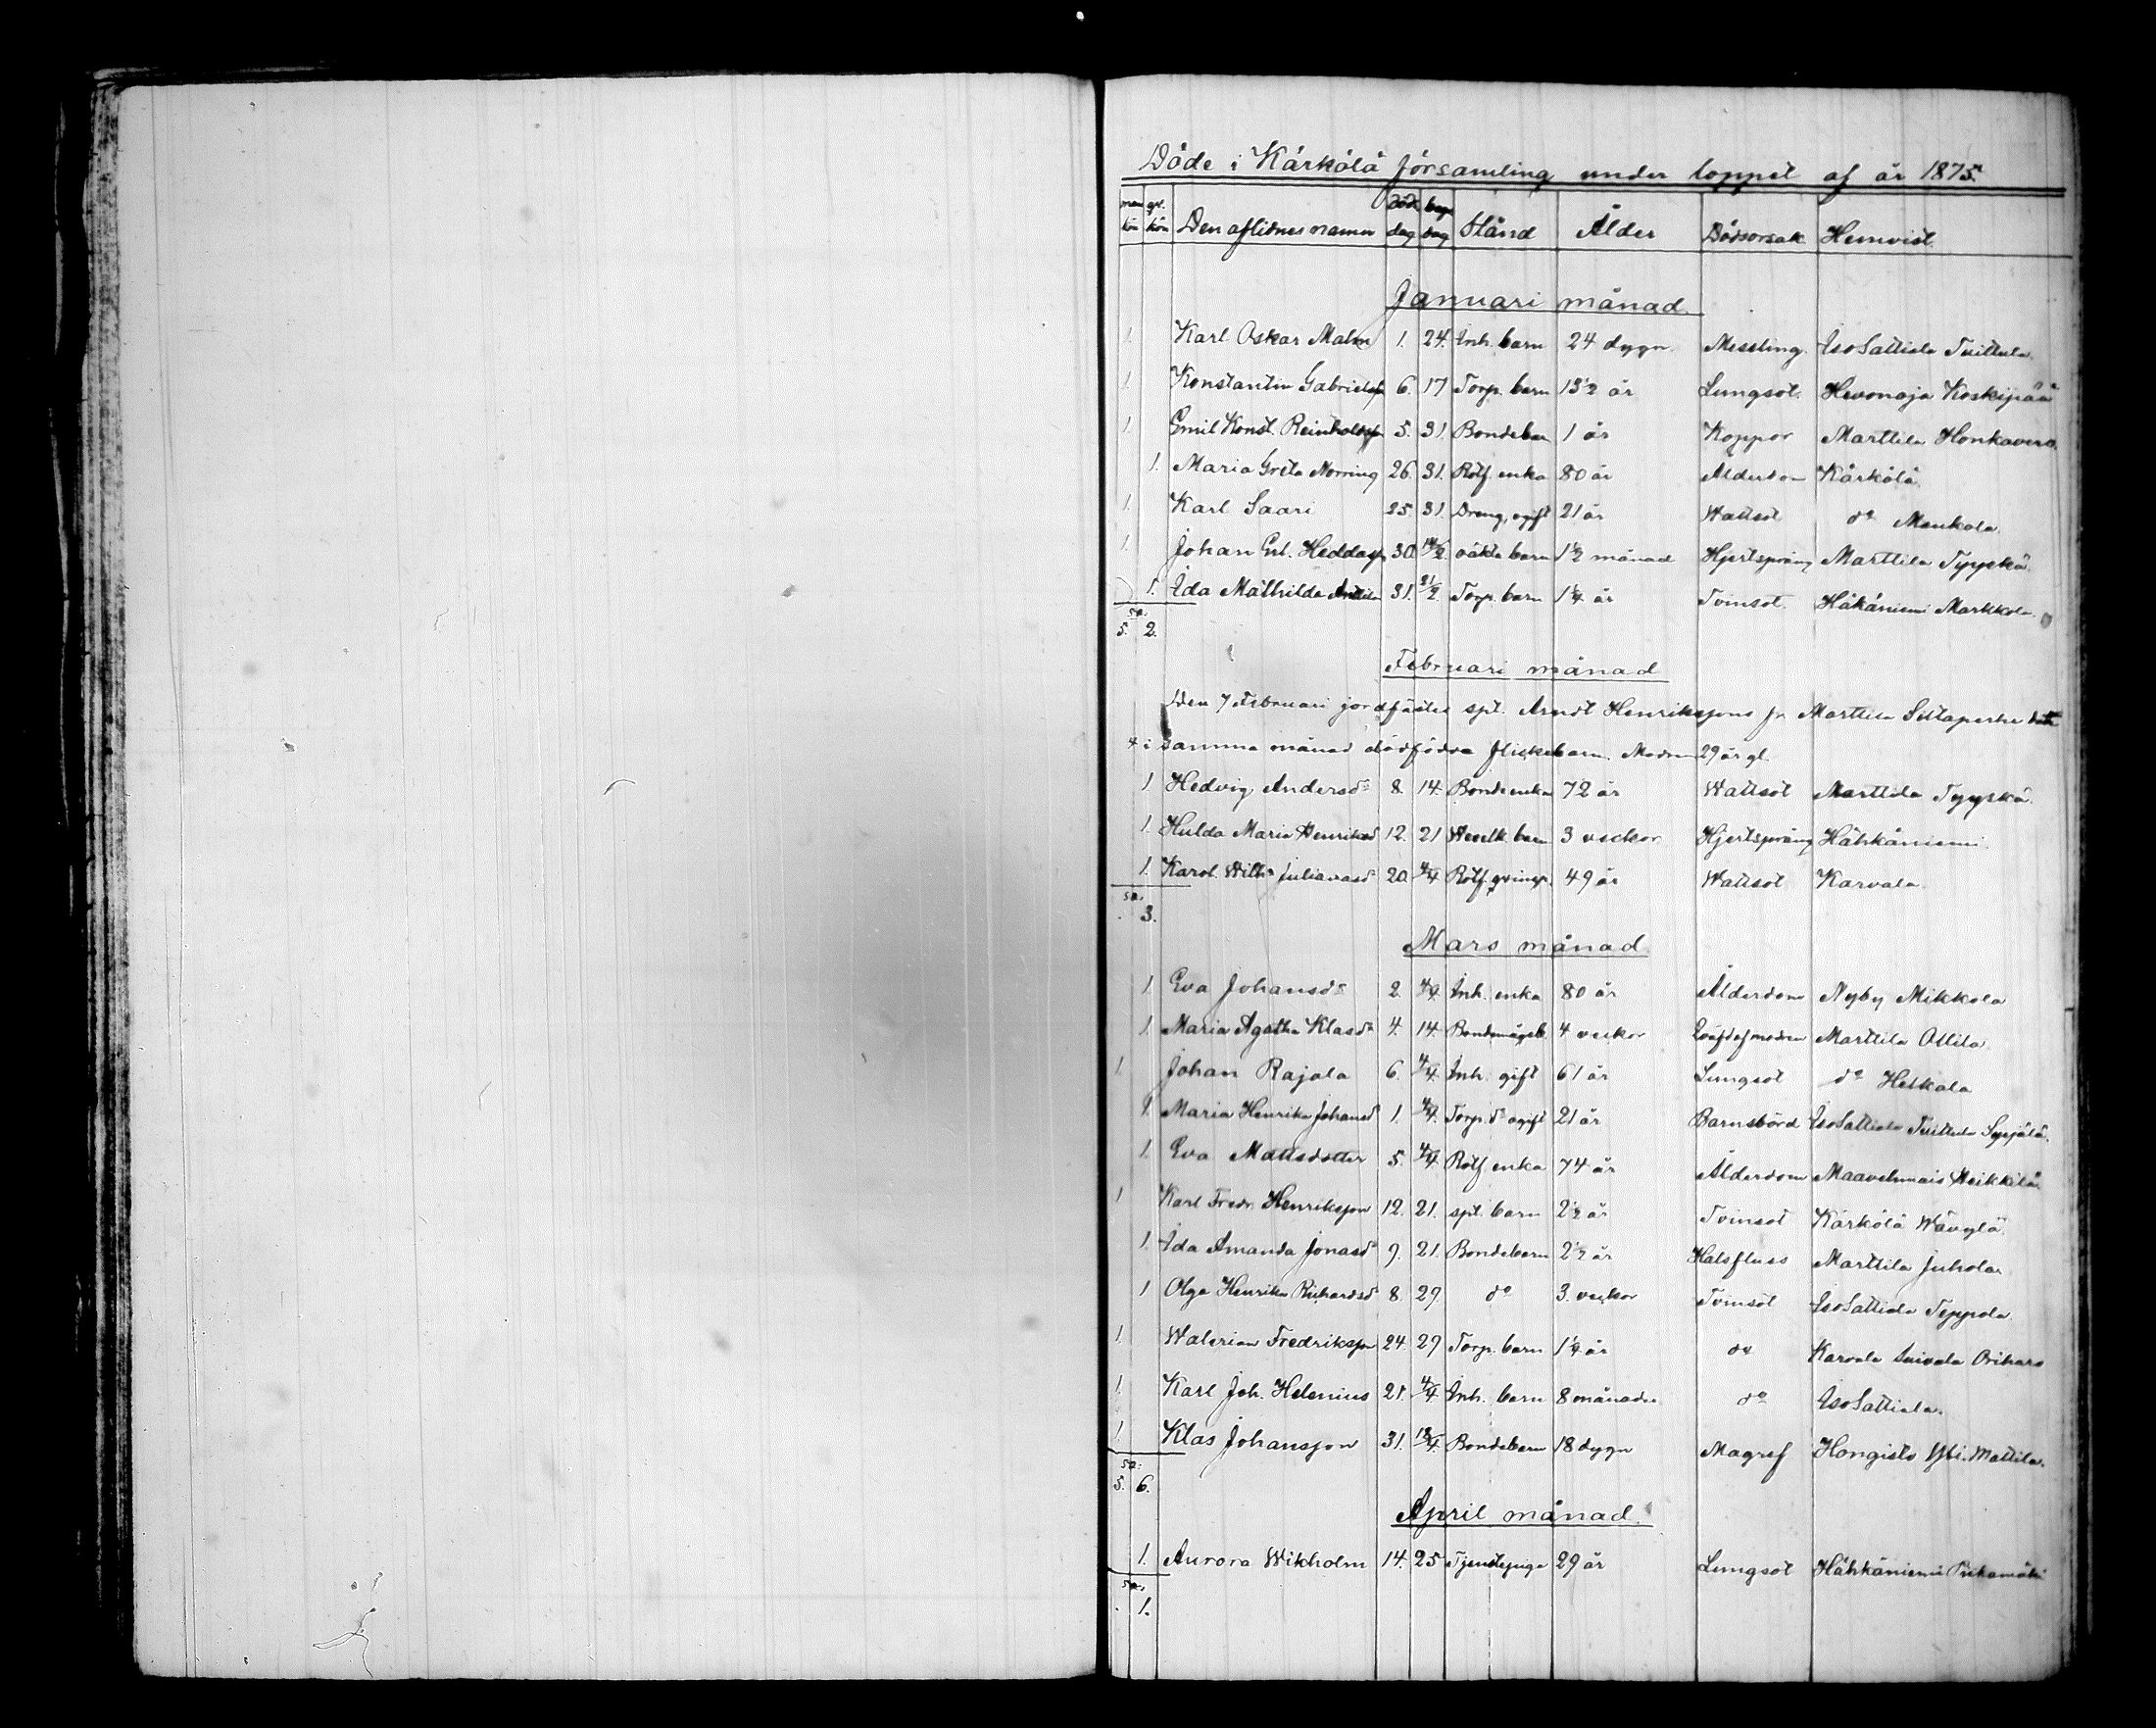 Döde i Kärkölä församling under loppet af år 1875.
man kön qv. kön Den aflidnes namn död dag begr dag Stånd Ålder Dödsorsak Hemvist.
Januari månad.
1. Karl Oskar Malm 1. 24. Inh. barn 24 dygn. Messling. IsoSattiala Tuittula.
1. Konstantin Gabrielsson 6. 17 Torp. barn 13½ år Lungsot. Hevonoja Koskipää
1. Emil Konst. Reinholdsson 5. 31. Bondebarn 1 år Koppor Marttila Honkavera.
1. Maria Greta Norring 26. 31. Rotf. enka 80 år Ålderdom Kärkölä
1. Karl Saari 25. 31. Dreng, ogift 21 år Wattsot do Maukola.
1. Johan Erl. Heddasson 30. 14/2. oäkta barn 1½ månad Hjertsprång Marttila Tyyskä.
1. Ida Mathilda Anttila 31. 21/2. Torp. barn 1¼ år Tvinsot. Häkäniemi Markkola.
sa. 5. 2.
Februari månad
Den 7 Februari jordfästes spt. Arndt Henrikssons fr. Marttila Siltaperhe den
4 i samma månad dödfödda flickebarn. Modren 29 år gl.
1. Hedvig Andersdr 8. 14. Bonde enka 72 år Wattsot Marttila Tyyskä.
1. Hulda Maria Henriksd 12. 21 barn 3 veckor Hjertsprång Hähkäniemi.
1. Karol. Wilh. Julianasdr 20. 4/4 Rotf. qvinsp. 49 år Wattsot Karvala
sa. 3.
Mars månad
1. Eva Johansdr 2. 4/4. Inh. enka 80 år Ålderdom Nyby Mikkola
1. Maria Agatha Klasdr 4. 14. Bondemågsb. 4 veckor Qväfd af modren Marttila Ollila
1. Johan Rajala 6. 4/4. Inh. gift 61 år Lungsot do Heikola
1. Maria Henrika Johansd 1. 4/4. Torp. dr ogift 21 år Barnsbörd IsoSattiala Tuittula Syrjälä.
1. Eva Mattsdotter 5. 4/4 Rotf enka 74 år Ålderdom Maavehmais Heikkilä.
1 Karl Fredr. Henriksson 12. 21. spt. barn 2½ år Tvinsot Kärkölä Wävylä
1. Ida Amanda Jonasdr 9. 21. Bondebarn 2½ år Halsfluss Marttila Juhola
1 Olga Henrika Richardsdr 8. 29 do 3. veckor Tvinsot IsoSattiala Teppola
1. Walerian Fredriksson 24. 29 Torp. barn 1¼ år do Karvala Orihara
1. Karl Joh. Helenius 21. 4/4 Inh. barn 8 månader do IsoSattiala.
1. Klas Johansson 31. 18/4. Bondebarn 18 dygn Magref Hongisto Yli-Mattila.
sa. 5. 6.
April månad.
1. Aurora Wikholm 14. 25 Tjenstepiga 29 år Lungsot Hähkäniemi Pukamäki
sa. 1.